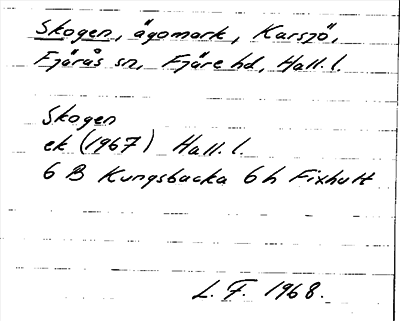 Skogen, ägomark, Karsjö,
Fjärås sn, Fjäre hd, Hall. l.
Skogen
ek (1967) Hall. l.
6 B Kungsbacka 6 h Fixhult
L. F. 1968.